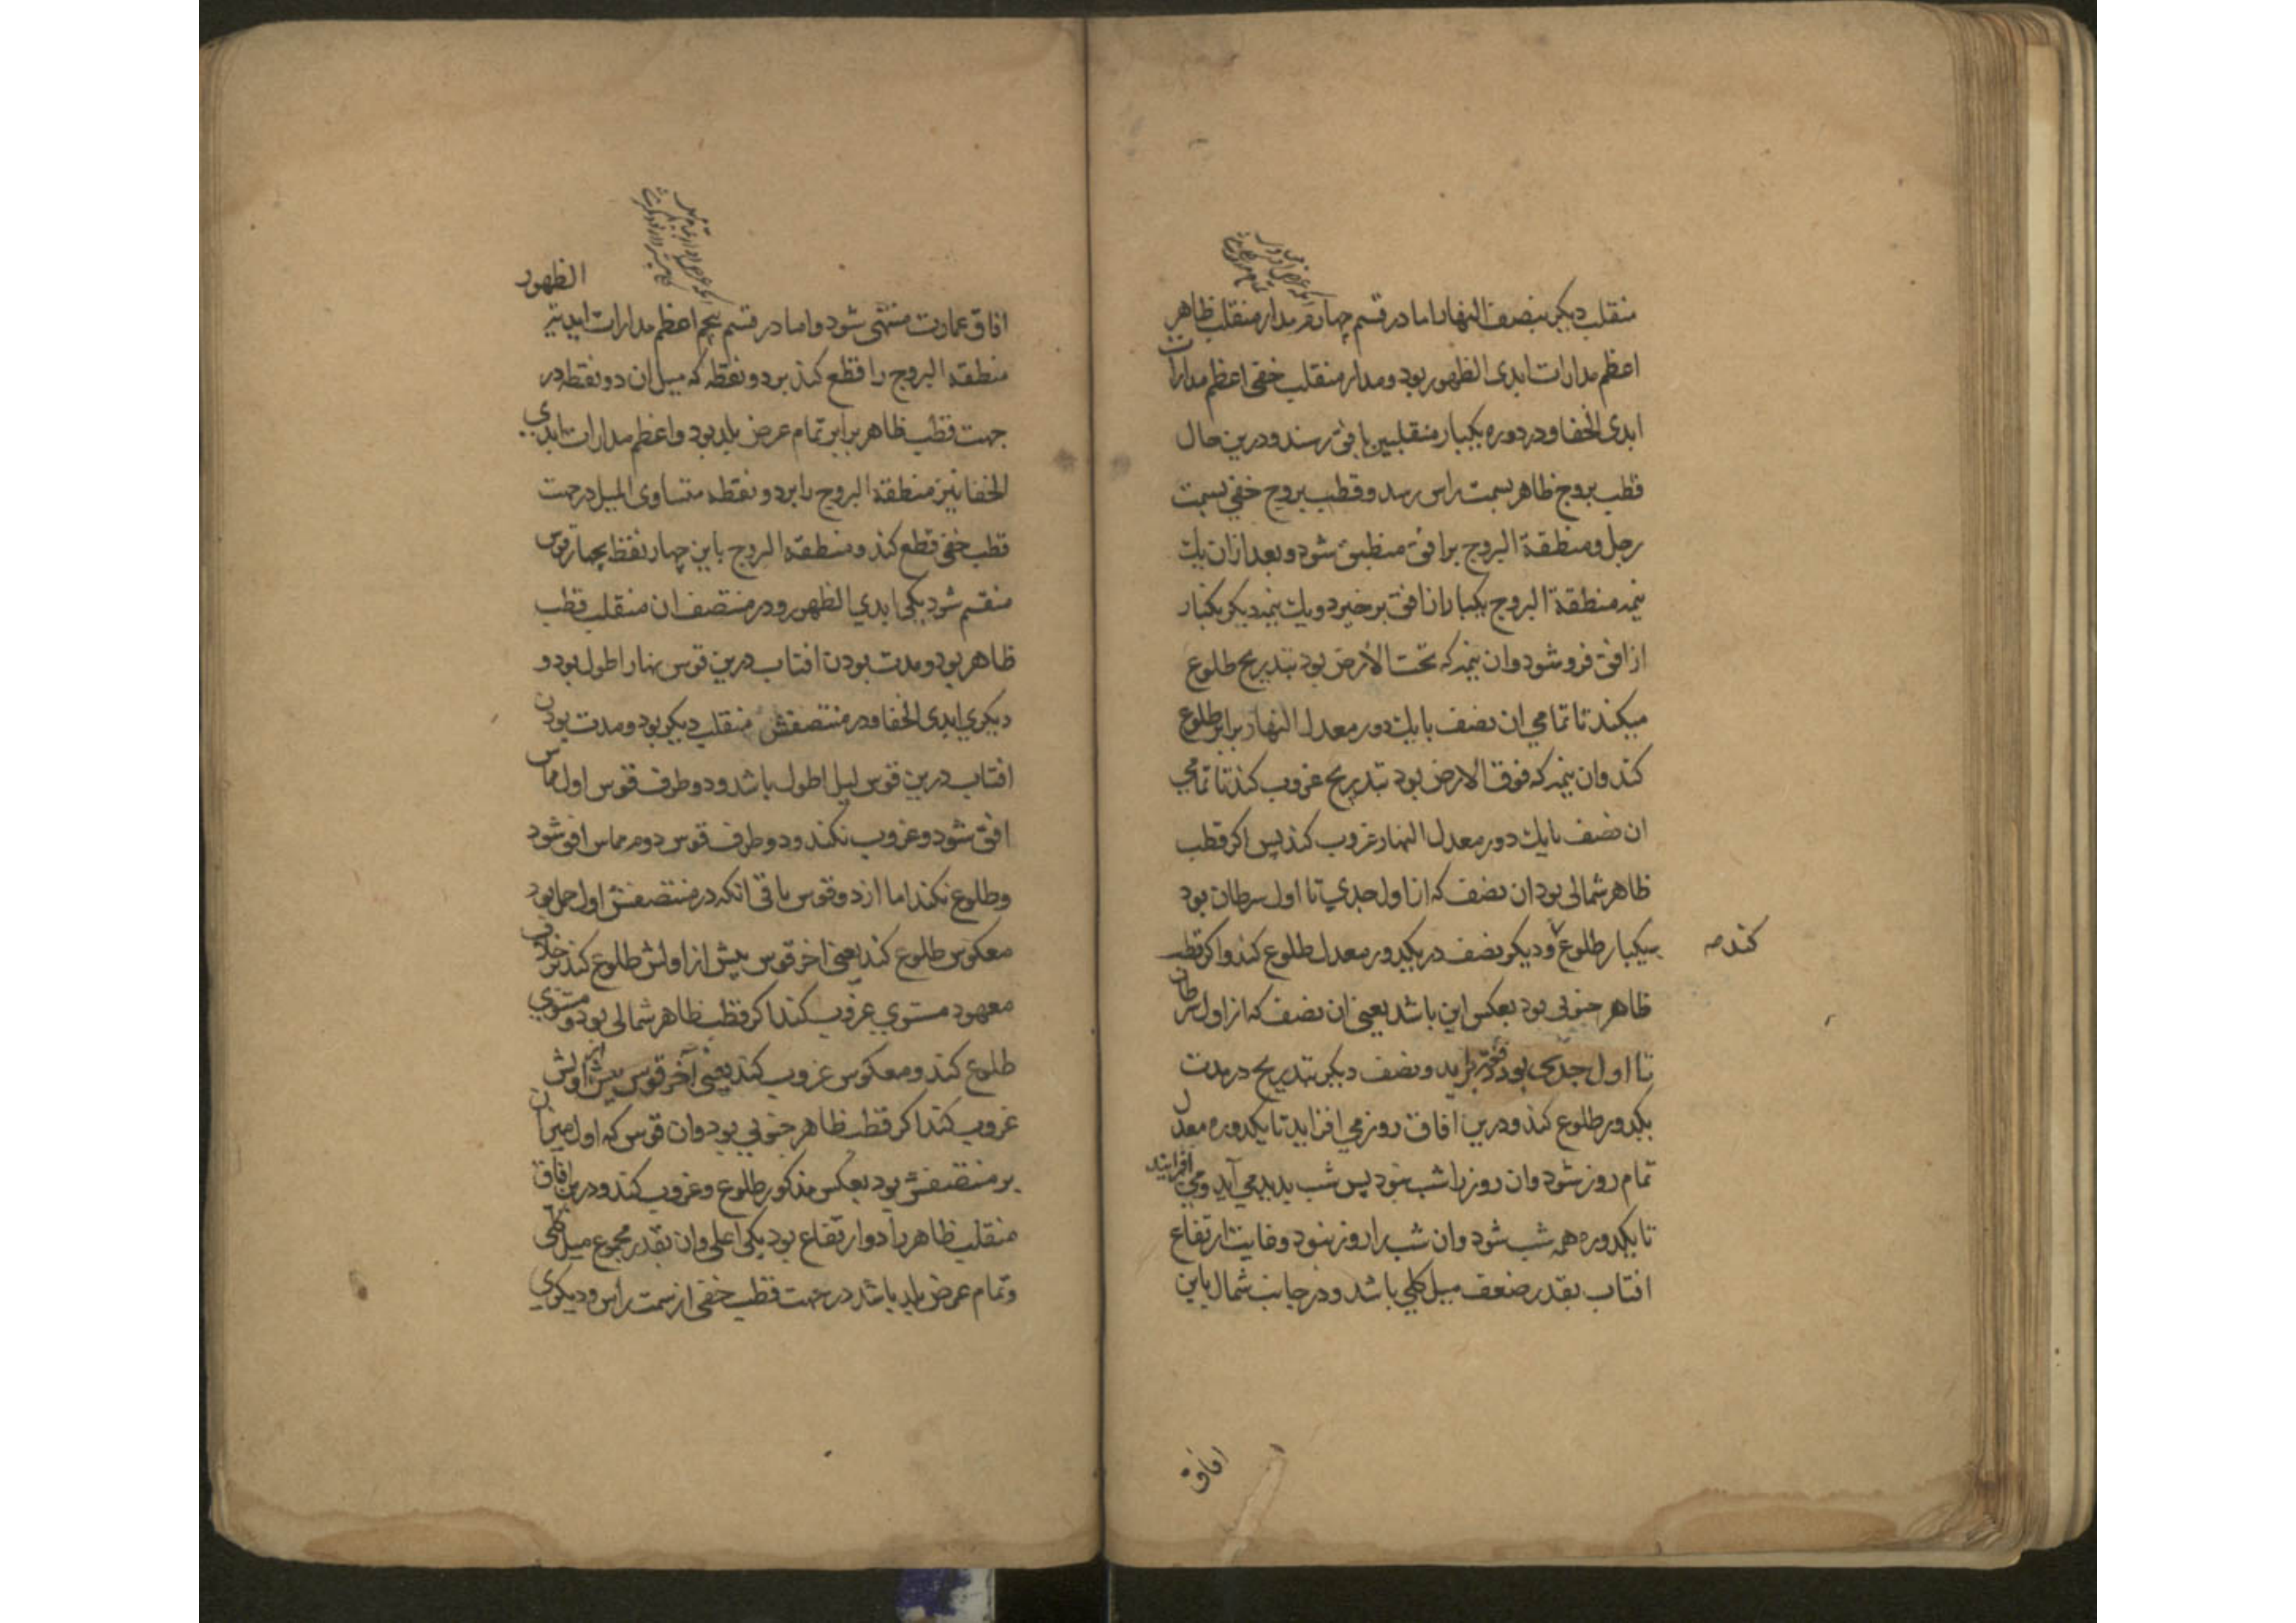 منقلب دیکر بنصف النهار اما در قسم چهارم مدار منقلب ظاهر
اعظم مدارات ابدی الظهور بود و مدار منقلب خفی اعظم مدارات
ابدی الخفا و در دوره یکبار منقلبین بافق رسند و درین حال
قطب بروج ظاهر بسمت راس رسد و قطب بروج خفی بسمت
رجل و منطقة البروج بر افق منطبق شود و بعد ازان یک
نیمه منطقة البروج یکبار از افق برخیزد و یک نیمه دیکر یکبار
از افق فرو شود و ان نیمه که تحت الارض بود بتدریج طلوع
میکند تا تمامی ان نصف با یک دور معدل النهار برابر طلوع
کند و ان نیمه که فوق الارض بود بتدریج غروب کند تا تمامی
ان نصف با یک دور معدل النهار غروب کند پس اکر قطب
ظاهر شمالی بود ان نصف که از اول جدی تا اول سرطان بود
بیکبار طلوع و دیکر نصف در یکدور معدل طلوع کند و اکر قطب
کند صه
ظاهر جنوبی بود بعکس این باشد یعنی ان نصف که از اول سرطان
تا اول جدی بود دفعة براید و نصف دیکر بتدریج در مدت
یکدور طلوع کند و درین افاق روز می افزاید تا یکدوره معدل
تمام روز شود و ان روز را شب نبود پس شب پدید می آید و می افزاید
تا یکدوره همه شب شود و ان شب را روز نبود و غایت ارتفاع
افتاب بقدر ضعف میل کلی باشد و در جانب شمال باین
افاق
الظهور
افاق عمارت منتهی شود و اما در قسم پنجم اعظم مدارات ابدیة
منطقة البروج را قطع کند بر دو نقطه که میل ان دو نقطه در
جهت قطب ظاهر برابر تمام عرض بلد بود و اعظم مدارات ابدی
الخفا نیز منطقة البروج را بر دو نقطه متساوی المیل در جهت
قطب خفی قطع کند و منطقة البروج باین چهار نقطه بچهار قوس
منقسم شود یکی ابدی الظهور و در منتصف ان منقلب قطب
ظاهر بود و مدت بودن افتاب درین قوس نهار اطول بود و
دیکری ابدی الخفا و در منتصفش منقلب دیکر بود و مدت بودن
افتاب درین قوس لیل اطول باشد و دو طرف قوس اول مماس
افق شود و غروب نکند و دو طرف قوس دوم مماس افق شود
و طلوع نکند اما از دو قوس باقی انکه در منتصفش اول حمل بود
معکوس طلوع کند یعنی اخر قوس پیش از اولش طلوع کند بر خلاف
معهود مستوی غروب کند اکر قطب ظاهر شمالی بود و مستوی
طلوع کند و معکوس غروب کند یعنی آخر قوس پیش از اولش
غروب کند اکر قطب ظاهر جنوبی بود و ان قوس که اول میزان
بر منتصفش بود بعکس مذکور طلوع و غروب کند و درین افاق
منقلب ظاهر را دو ارتفاع بود یکی اعلی و ان بقدر مجموع میل کلی
و تمام عرض بلد باشد در جهت قطب خفی از سمت رأس و دیکری